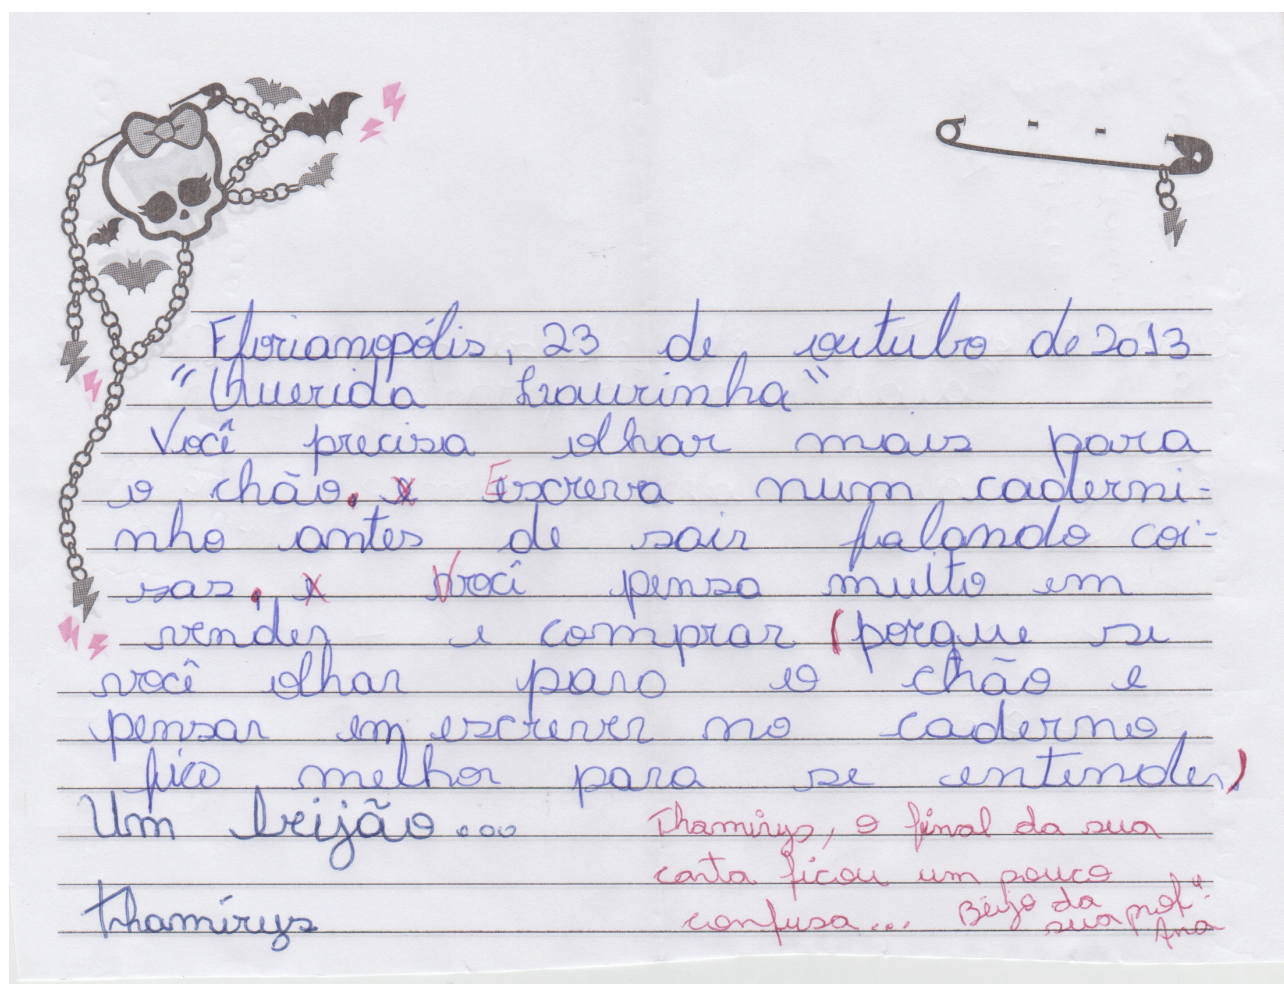 Florianopólis, 23 de outubro de 2013
"Querida Laurinha"
Você precisa olhar mais para
o chão. x Escreva num caderni-
nho antes de sair falando coi-
sas. x Você pensa muito em
vender e comprar (porque se
você olhar para o chão e
pensar em escrever no caderno
fica melhor para se entender)
Um beijão...
Thamirys, o final da sua
carta ficou um pouco
confusa... Beijo da
sua profª
Ana
Thamírys